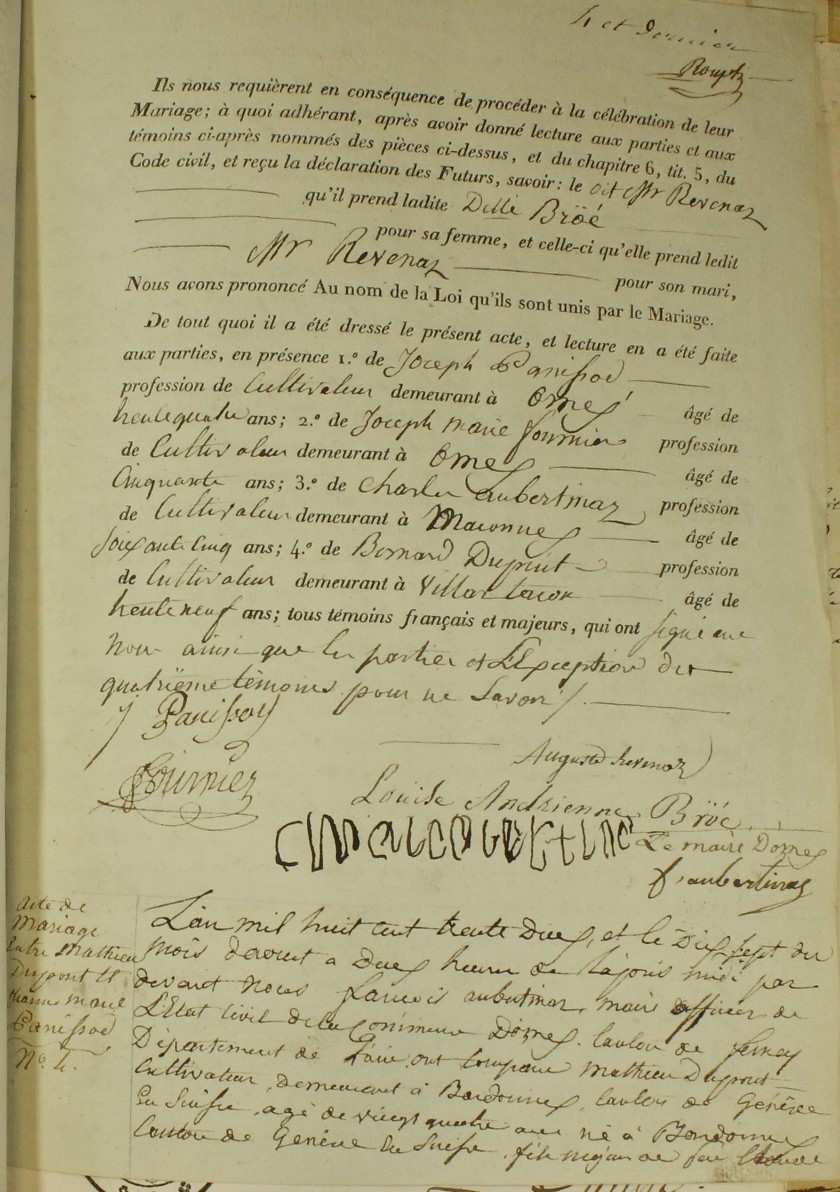 4 et dernier
Ils nous requièrent en conséquence de procéder à la célébration de leur
Mariage; à quoi adhérant, après avoir donné lecture aux parties et aux
témoins ci-après nommés des pièces ci-dessus, et du chapitre 6, tit. 5, du
Code civil, et reçu la déclaration des Futurs, savoir: le dit Mr Revenaz
qu'il prend ladite Delle Bröé
pour sa femme, et celle-ci qu'elle prend ledit
Mr Revenaz pour son mari,
Nous avons prononcé Au nom de la Loi qu'ils sont unis par le Mariage.
De tout quoi il a été dressé le présent acte, et lecture en a été faite
aux parties, en présence 1.º de Joseph Panissod
profession de Cultivateur demeurant à Ornex âgé de
trente quatre ans; 2.º de Joseph Marie fournier profession
de Cultivateur demeurant à Ornex âgé de
Cinquante ans; 3.º de Charles aubertinaz profession
de Cultivateur demeurant à Maconnex âgé de
soixante cinq ans; 4.º de Bernard Dupont profession
de Cultivateur demeurant à Villard tacon âgé de
trente neuf ans; tous témoins français et majeurs, qui ont signé avec
nous ainsi que les parties et L'Exception du
quatrième témoins pour ne Savoir /.
J Panissod
Auguste Revenaz
Fournier
Louise Andrienne Bröé
Le maire Dornex
f. aubertinaz
acte de
Mariage
Entre Mathieu
Dupont et
marie
Panissod
Nº 4.
L'an mil huit cent trente Deux, et le Dix sept du
mois daout a Deux heures de lapres midi par
devant nous francois aubertinaz, maire officier de
L'Etat Civil de la Commune Dornex. Canton de ferney
Département de L'ain, ont Comparu Mathieu Dupont
Cultivateur, demeurant à Bardonnex, Canton de Genève
En Suisse, agé de vingt quatre ans né à Bardonnex
Canton de Genève En Suisse, fils majeur de feu Claude